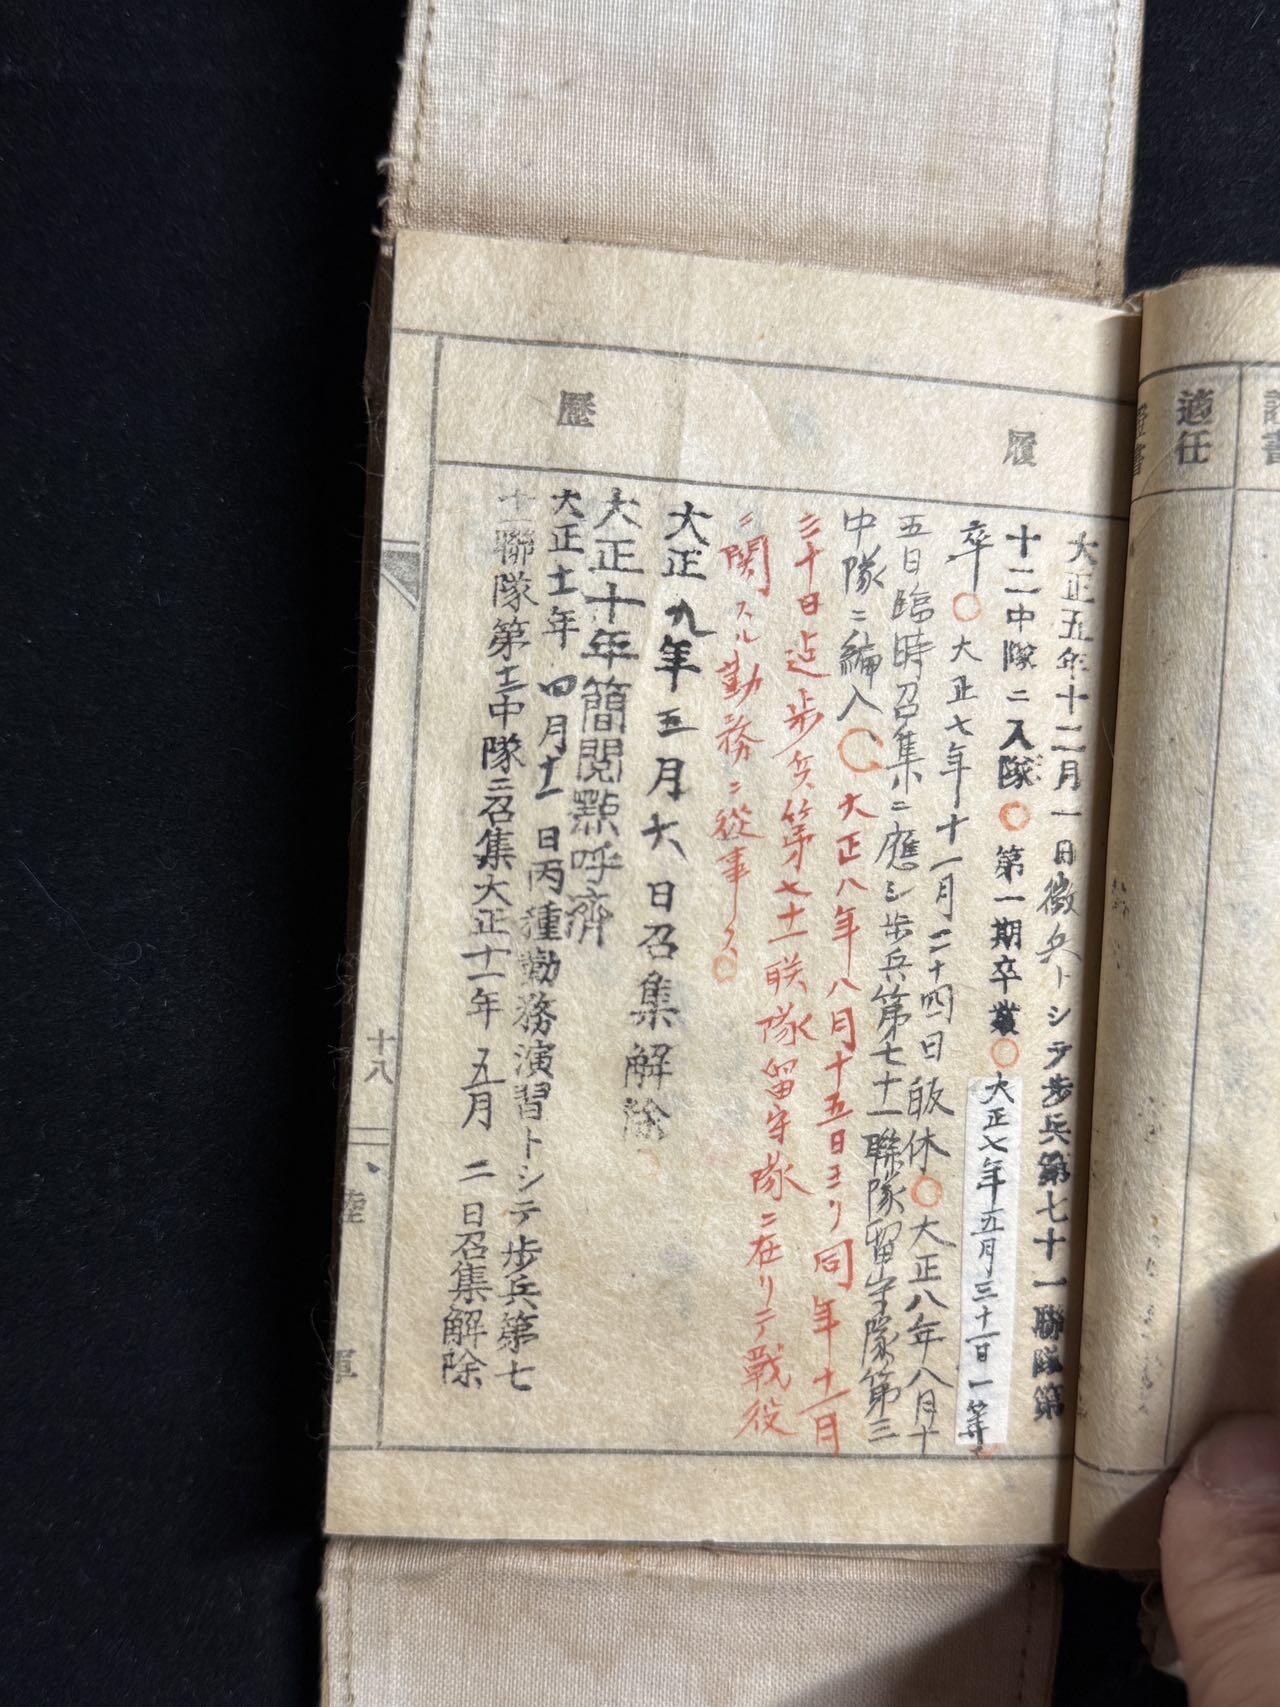 履歷
大正五年十二月一日徴兵トシテ歩兵第七十一聯隊第
十二中隊ニ入隊○第一期卒業○大正七年五月三十一日一等
卒○大正七年十一月二十四日皈休○大正八年八月十
五日臨時召集ニ應シ歩兵第七十一聯隊留守隊第三
中隊ニ編入○大正八年八月十五日ヨリ同年十一月
三十日迠歩兵第七十一联隊留守隊ニ在リテ戰役
ニ関スル勤務ニ從事ス○
大正九年五月六日召集解除
大正十年簡閲點呼済
大正十一年四月十一日丙種勤務演習トシテ歩兵第七
十一聯隊第十二中隊ニ召集大正十一年五月二日召集解除
十八
陸軍
適任
證書